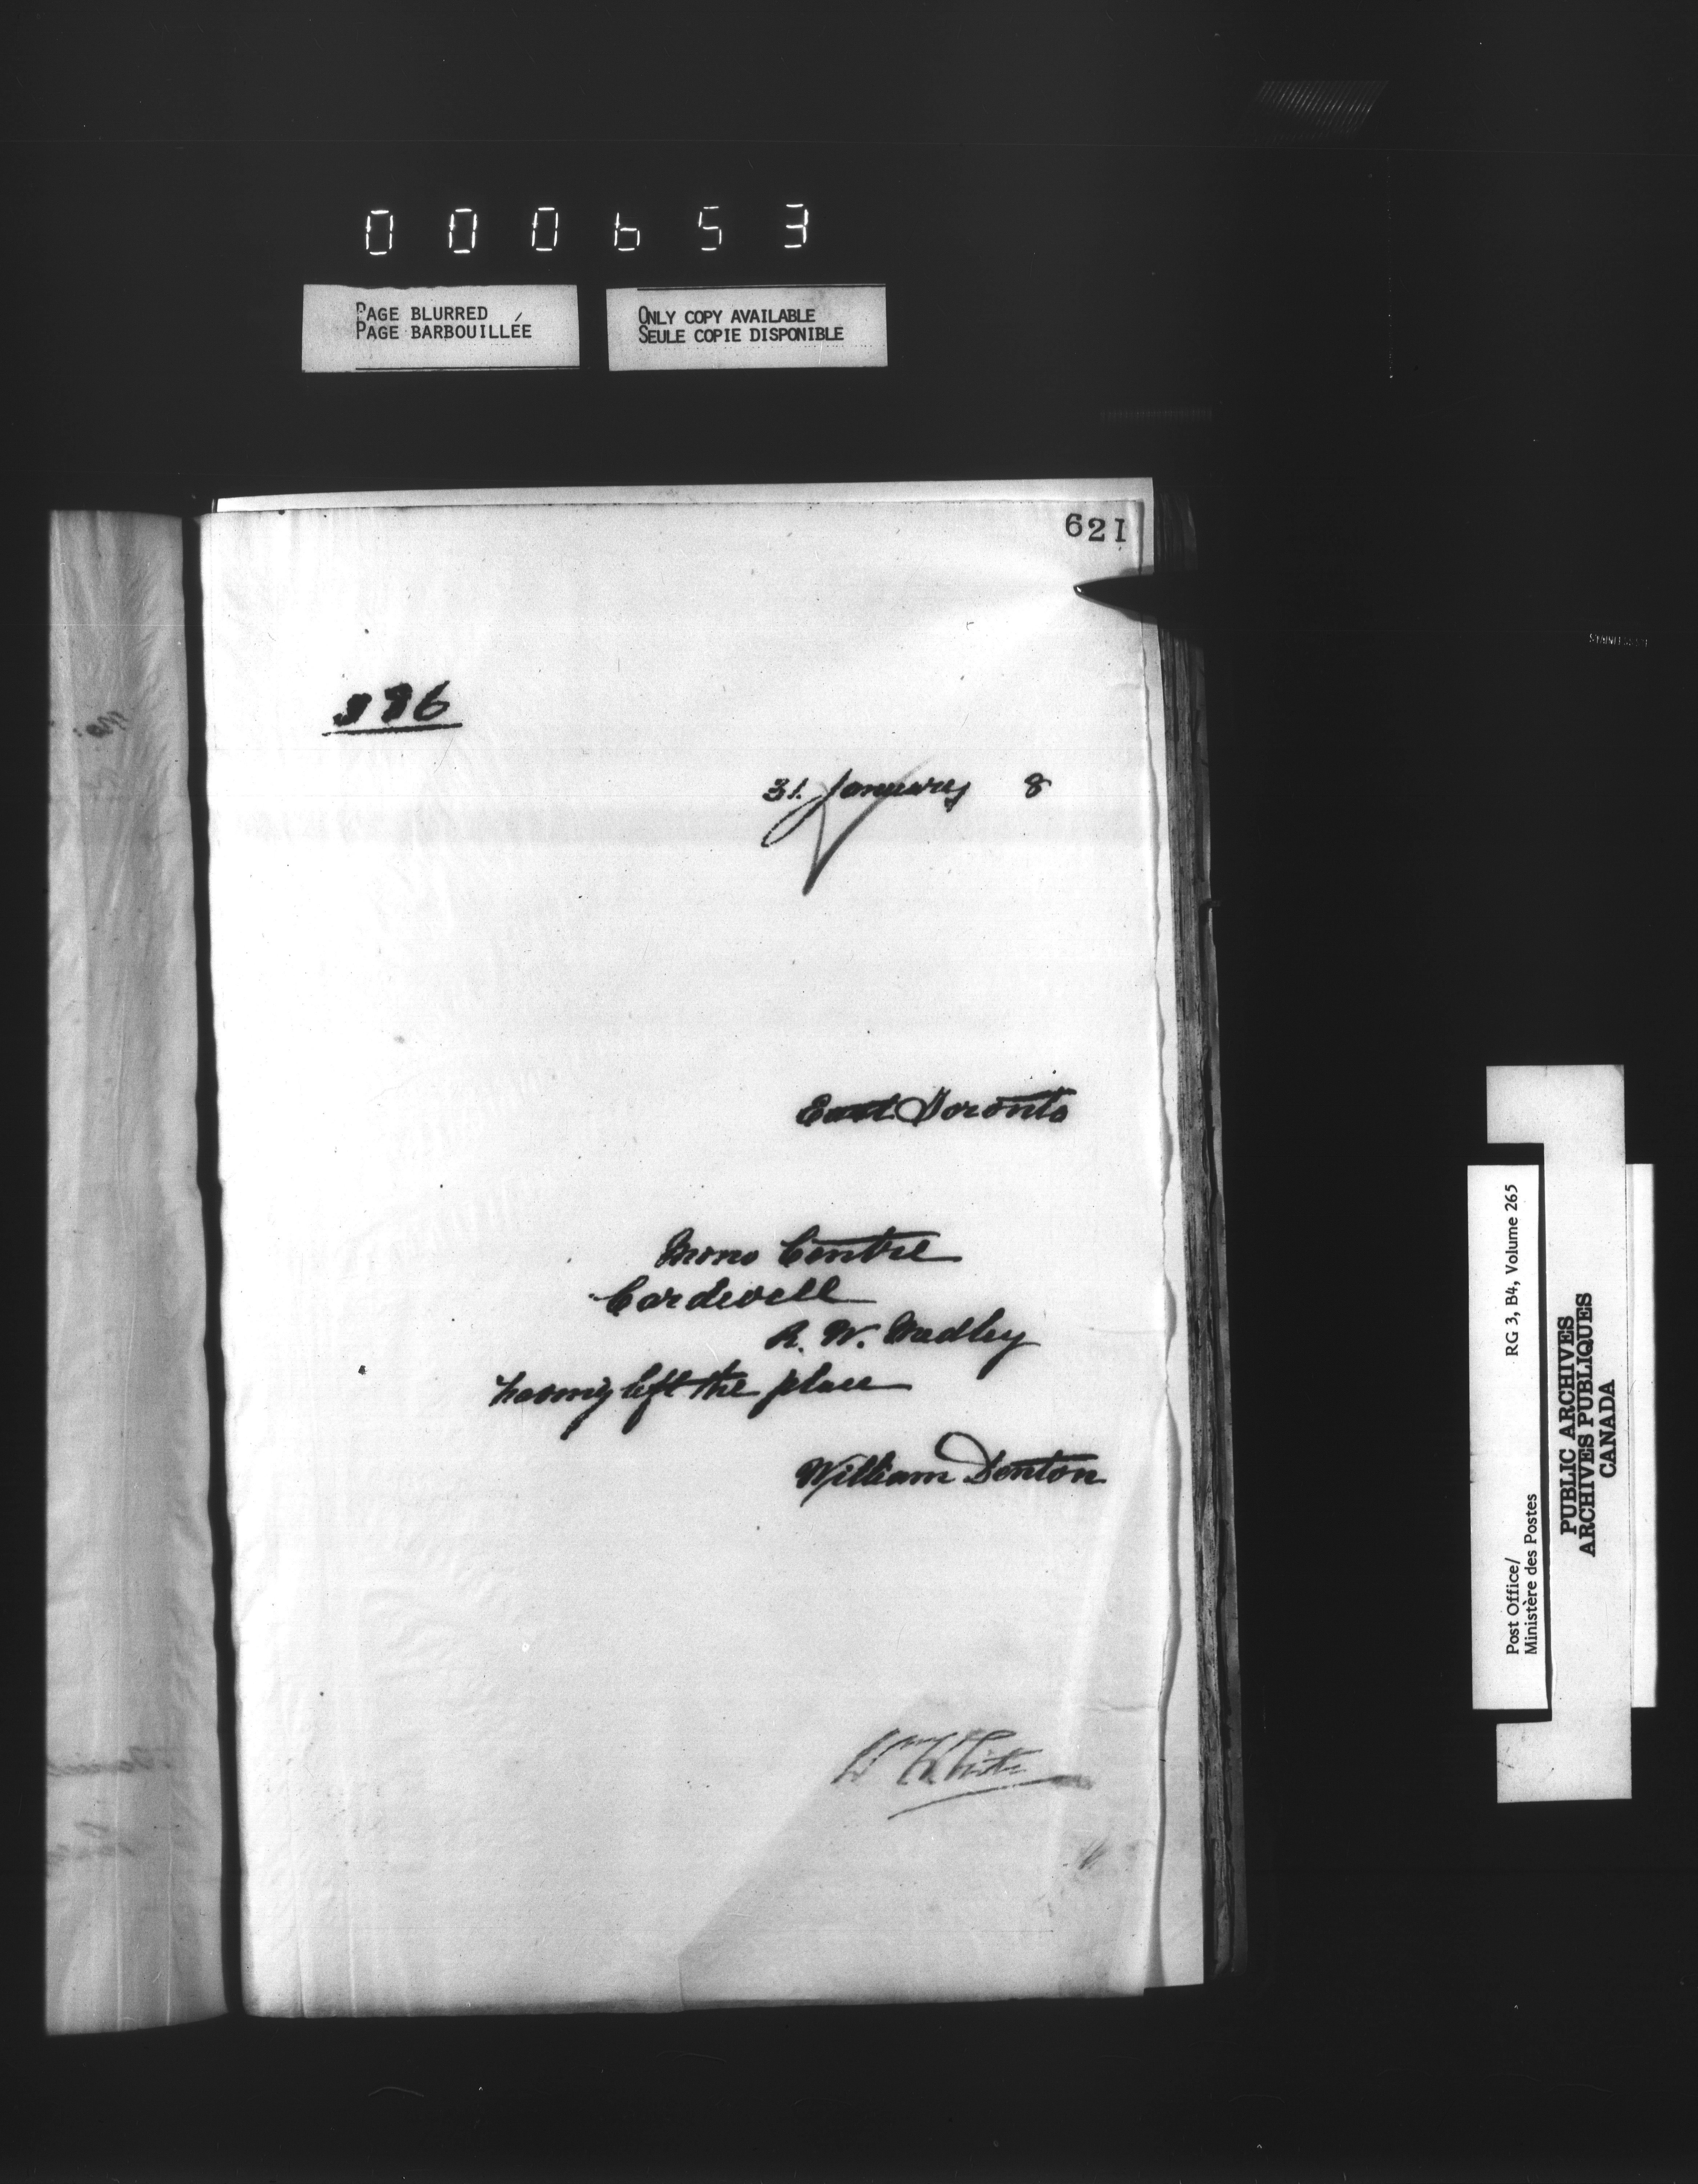 000653
PAGE BLURRED
PAGE BARBOUILLÉE
ONLY COPY AVAILABLE
SEULE COPIE DISPONIBLE
621
31. January 8
East Toronto
Mono Centre
Cardwell
A. W. Medley
having left the place
William Denton
Wm White
Post Office/
Ministère des Postes
RG 3, B4, Volume 265
PUBLIC ARCHIVES
ARCHIVES PUBLIQUES
CANADA